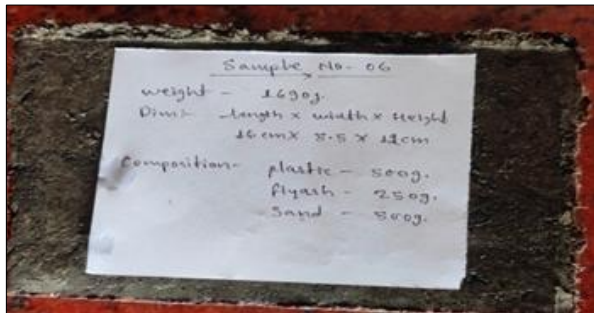 Sample No- 06
weight - 1690g.
Dim:- length x width x Height
16 cm x 8.5 x
Composition- plastic - 500g.
flyash - 250g.
Sand - 500g.